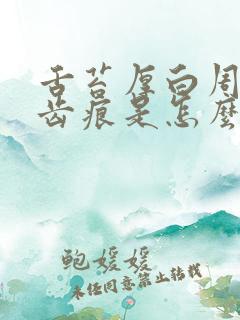 舌苔厚白周
齿痕是怎麽
鲍媛媛
未经同意禁止转载